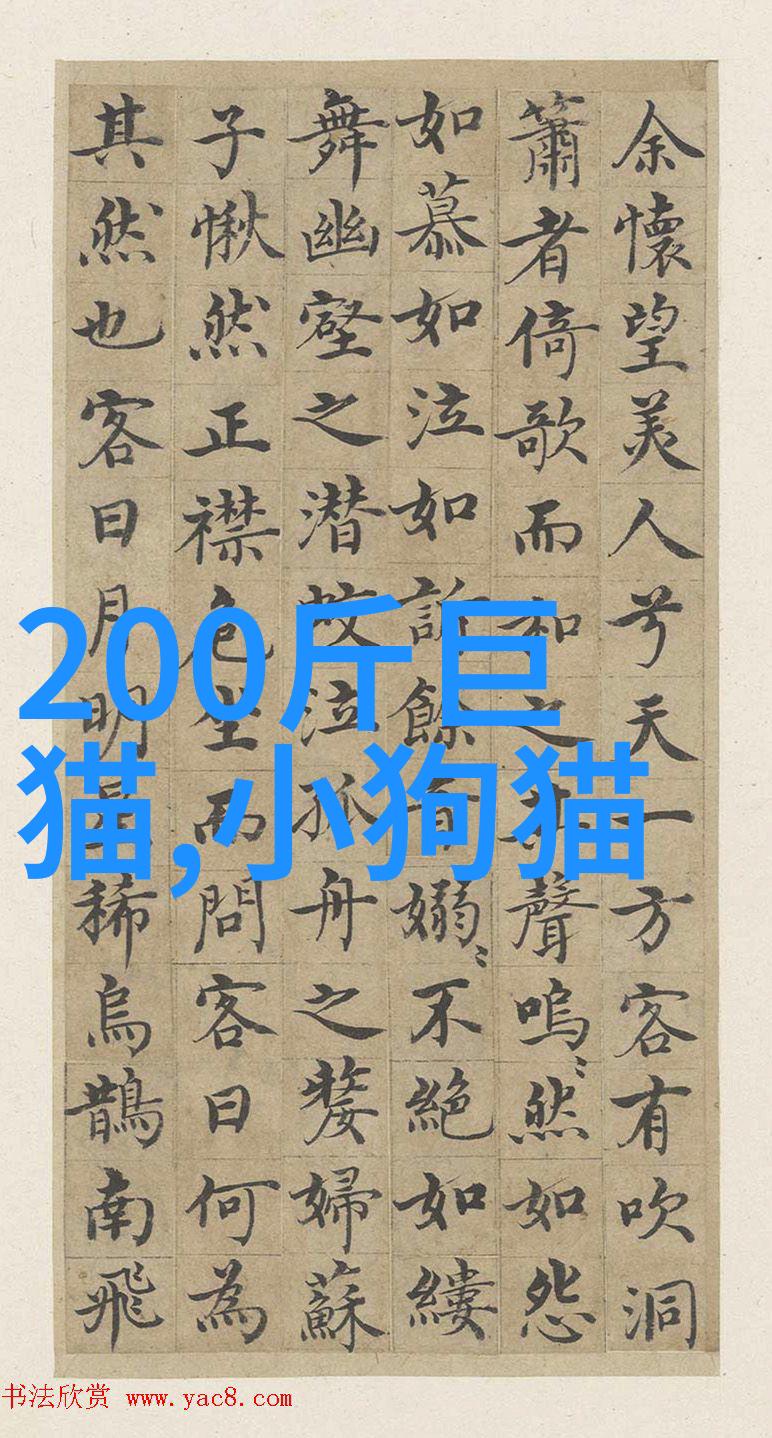 余懷望美人兮天一方客有吹洞
簫者倚歌而和之其聲嗚〻然如怨
如慕如泣如訴餘音嫋〻不絕如縷
舞幽壑之潜蛟泣孤舟之嫠婦蘇
子愀然正襟危坐而問客曰何為
其然也客曰月明星稀烏鵲南飛
200斤巨
猫,小狗猫
书法欣赏 www.yac8.com